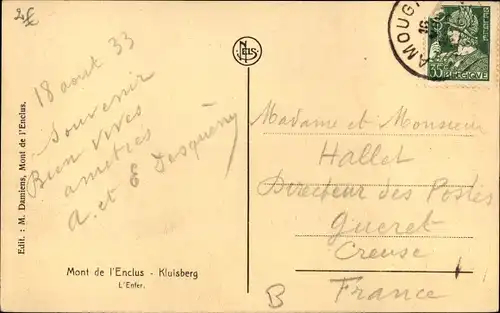 2€
18 aout 33
Souvenir
Bien vives
amitiés
A. et E Dasquény
Edit. : M. Damiens, Mont de l'Enclus.
Mont de l'Enclus - Kluisberg
L'Enfer.
NELS
AMOUG
35
BELGIQUE
Madame et Monsieur
Hallet
Directeur des Postes
Gueret
Creuse
France
B